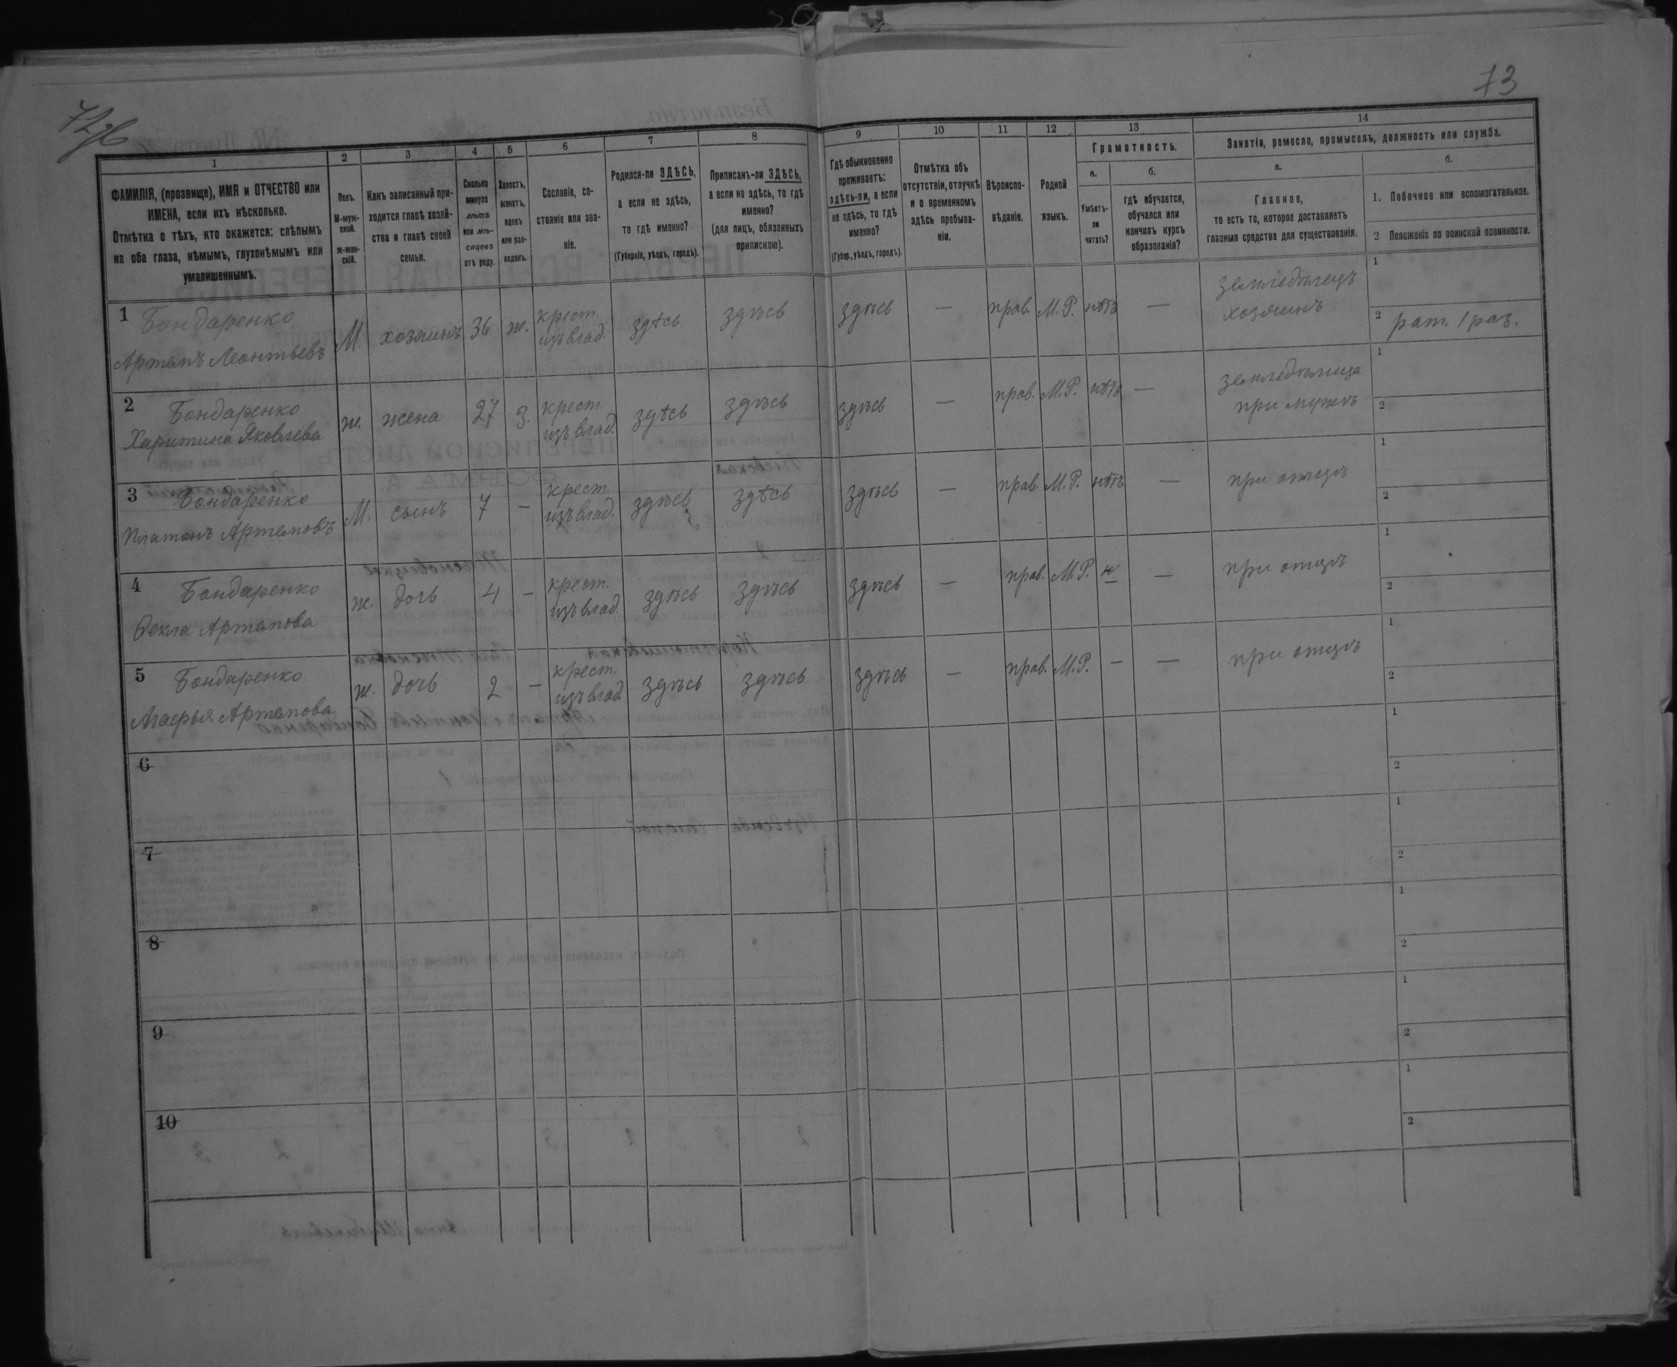 72об
73
1
ФАМИЛІЯ, (прозвище), ИМЯ и ОТЧЕСТВО или
ИМЕНА, если ихъ нѣсколько.
Отмѣтка о тѣхъ, кто окажется: слѣпымъ
на оба глаза, нѣмымъ, глухонѣмымъ или
умалишеннымъ.
2
Полъ.
М-муж-
ской.
ж-жен-
скій.
3
Какъ записанный при-
ходится главѣ хозяй-
ства и главѣ своей
семьи.
4
Сколько
минуло
лѣтъ
или мѣ-
сяцевъ
отъ роду.
5
Холостъ,
женатъ,
вдовъ
или раз-
веденъ.
6
Сословіе, со-
стояніе или зва-
ніе.
7
Родился-ли ЗДѢСЬ,
а если не здѣсь,
то гдѣ именно?
(Губернія, уѣздъ, городъ).
8
Приписанъ-ли ЗДѢСЬ,
а если не здѣсь, то гдѣ
именно?
(для лицъ, обязанныхъ
припискою).
9
Гдѣ обыкновенно
проживаетъ:
здѣсь-ли, а если
не здѣсь, то гдѣ
именно?
(Губер., уѣздъ, городъ).
10
Отмѣтка объ
отсутствіи, отлучкѣ
и о временномъ
здѣсь пребыва-
ніи.
11
Вѣроиспо-
вѣданіе.
12
Родной
языкъ.
13
Грамотность.
а.
Умѣетъ-
ли
читать?
б.
гдѣ обучается,
обучался или
кончилъ курсъ
образованія?
14
Занятія, ремесло, промыселъ, должность или служба.
а.
Главное,
то есть то, которое доставляетъ
главныя средства для существованія.
б.
1. Побочное или вспомогательное.
2 Положеніе по воинской повинности.
1 Бондаренко
Артемъ Леонтьевъ
М. хозяинъ 36 ж. крест. изъ влад. здѣсь здѣсь здѣсь — прав. М.Р. нѣтъ — земледѣлецъ хозяинъ
1
2 рат. 1 раз.
2 Бондаренко
Харитина Яковлева
ж. жена 27 з. крест. изъ влад. здѣсь здѣсь здѣсь — прав. М.Р. нѣтъ — земледѣлица при мужѣ
1
2
3 Бондаренко
Платонъ Артемовъ
М. сынъ 7 — крест. изъ влад. здѣсь здѣсь здѣсь — прав. М.Р. нѣтъ — при отцѣ
1
2
4 Бондаренко
Ѳекла Артемова
ж. дочь 4 — крест. изъ влад. здѣсь здѣсь здѣсь — прав. М.Р. н — при отцѣ
1
2
5 Бондаренко
Марья Артемова
ж. дочь 2 — крест. изъ влад. здѣсь здѣсь здѣсь — прав. М.Р. — — при отцѣ
1
2
6
1
2
7
1
2
8
1
2
9
1
2
10
1
2